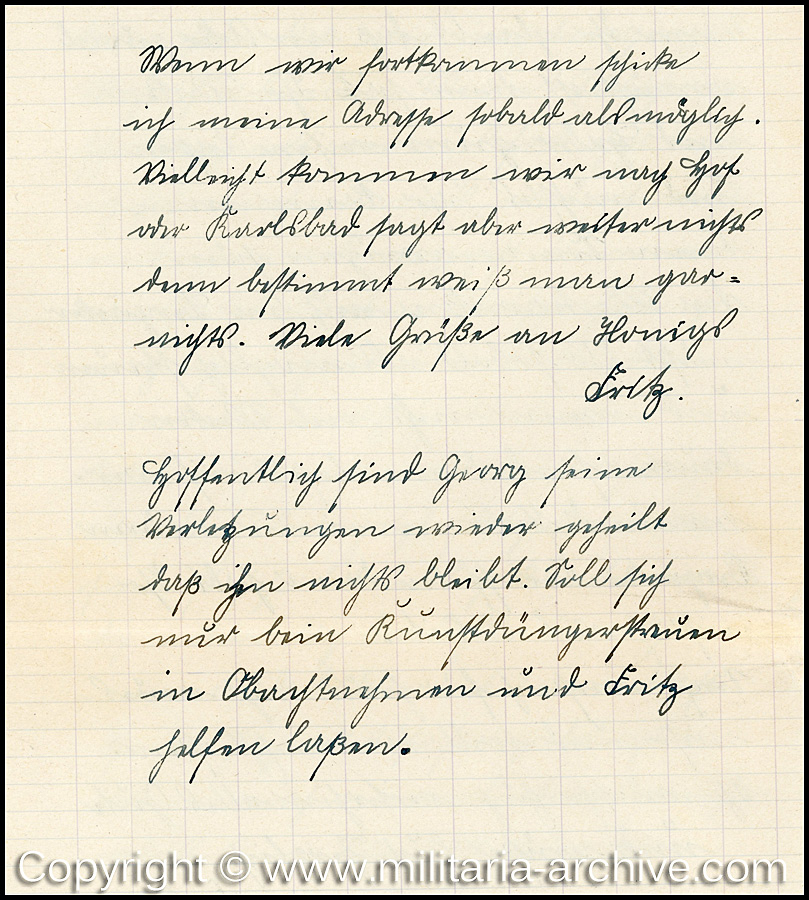 Wenn wir fortkommen schicke
ich meine Adresse sobald als möglich.
Vielleicht kommen wir nach Hof
oder Karlsbad sagt aber weiter nichts
denn bestimmt weiß man gar=
nichts. Viele Grüße an Honigs
Fritz.
Hoffentlich sind Georg seine
Verletzungen wieder geheilt
daß ihm nichts bleibt. Soll sich
nur bein Kunstdüngerstreuen
in Obachtnehmen und Fritz
helfen laßen.
Copyright © www.militaria-archive.com